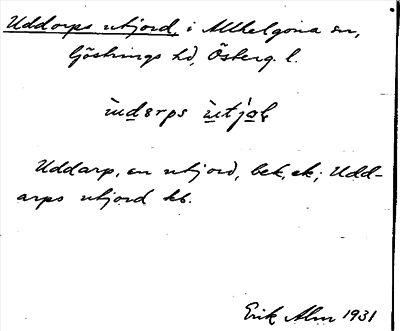 Uddorps utjord, i Allhelgona sn,
Göstrings hd, Österg. l.
Uddarp, en utjord, bek. ek; Udd-
arps utjord kb.
Erik Alm 1931